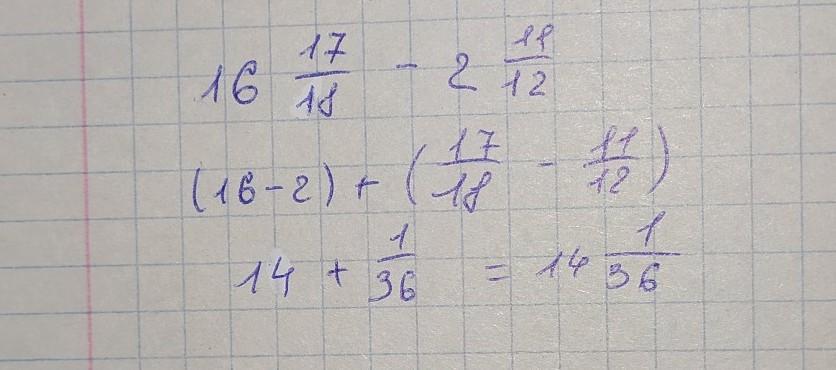 16 17/18 - 2 11/12
(16-2) + (17/18 - 11/12)
14 + 1/36 = 14 1/36